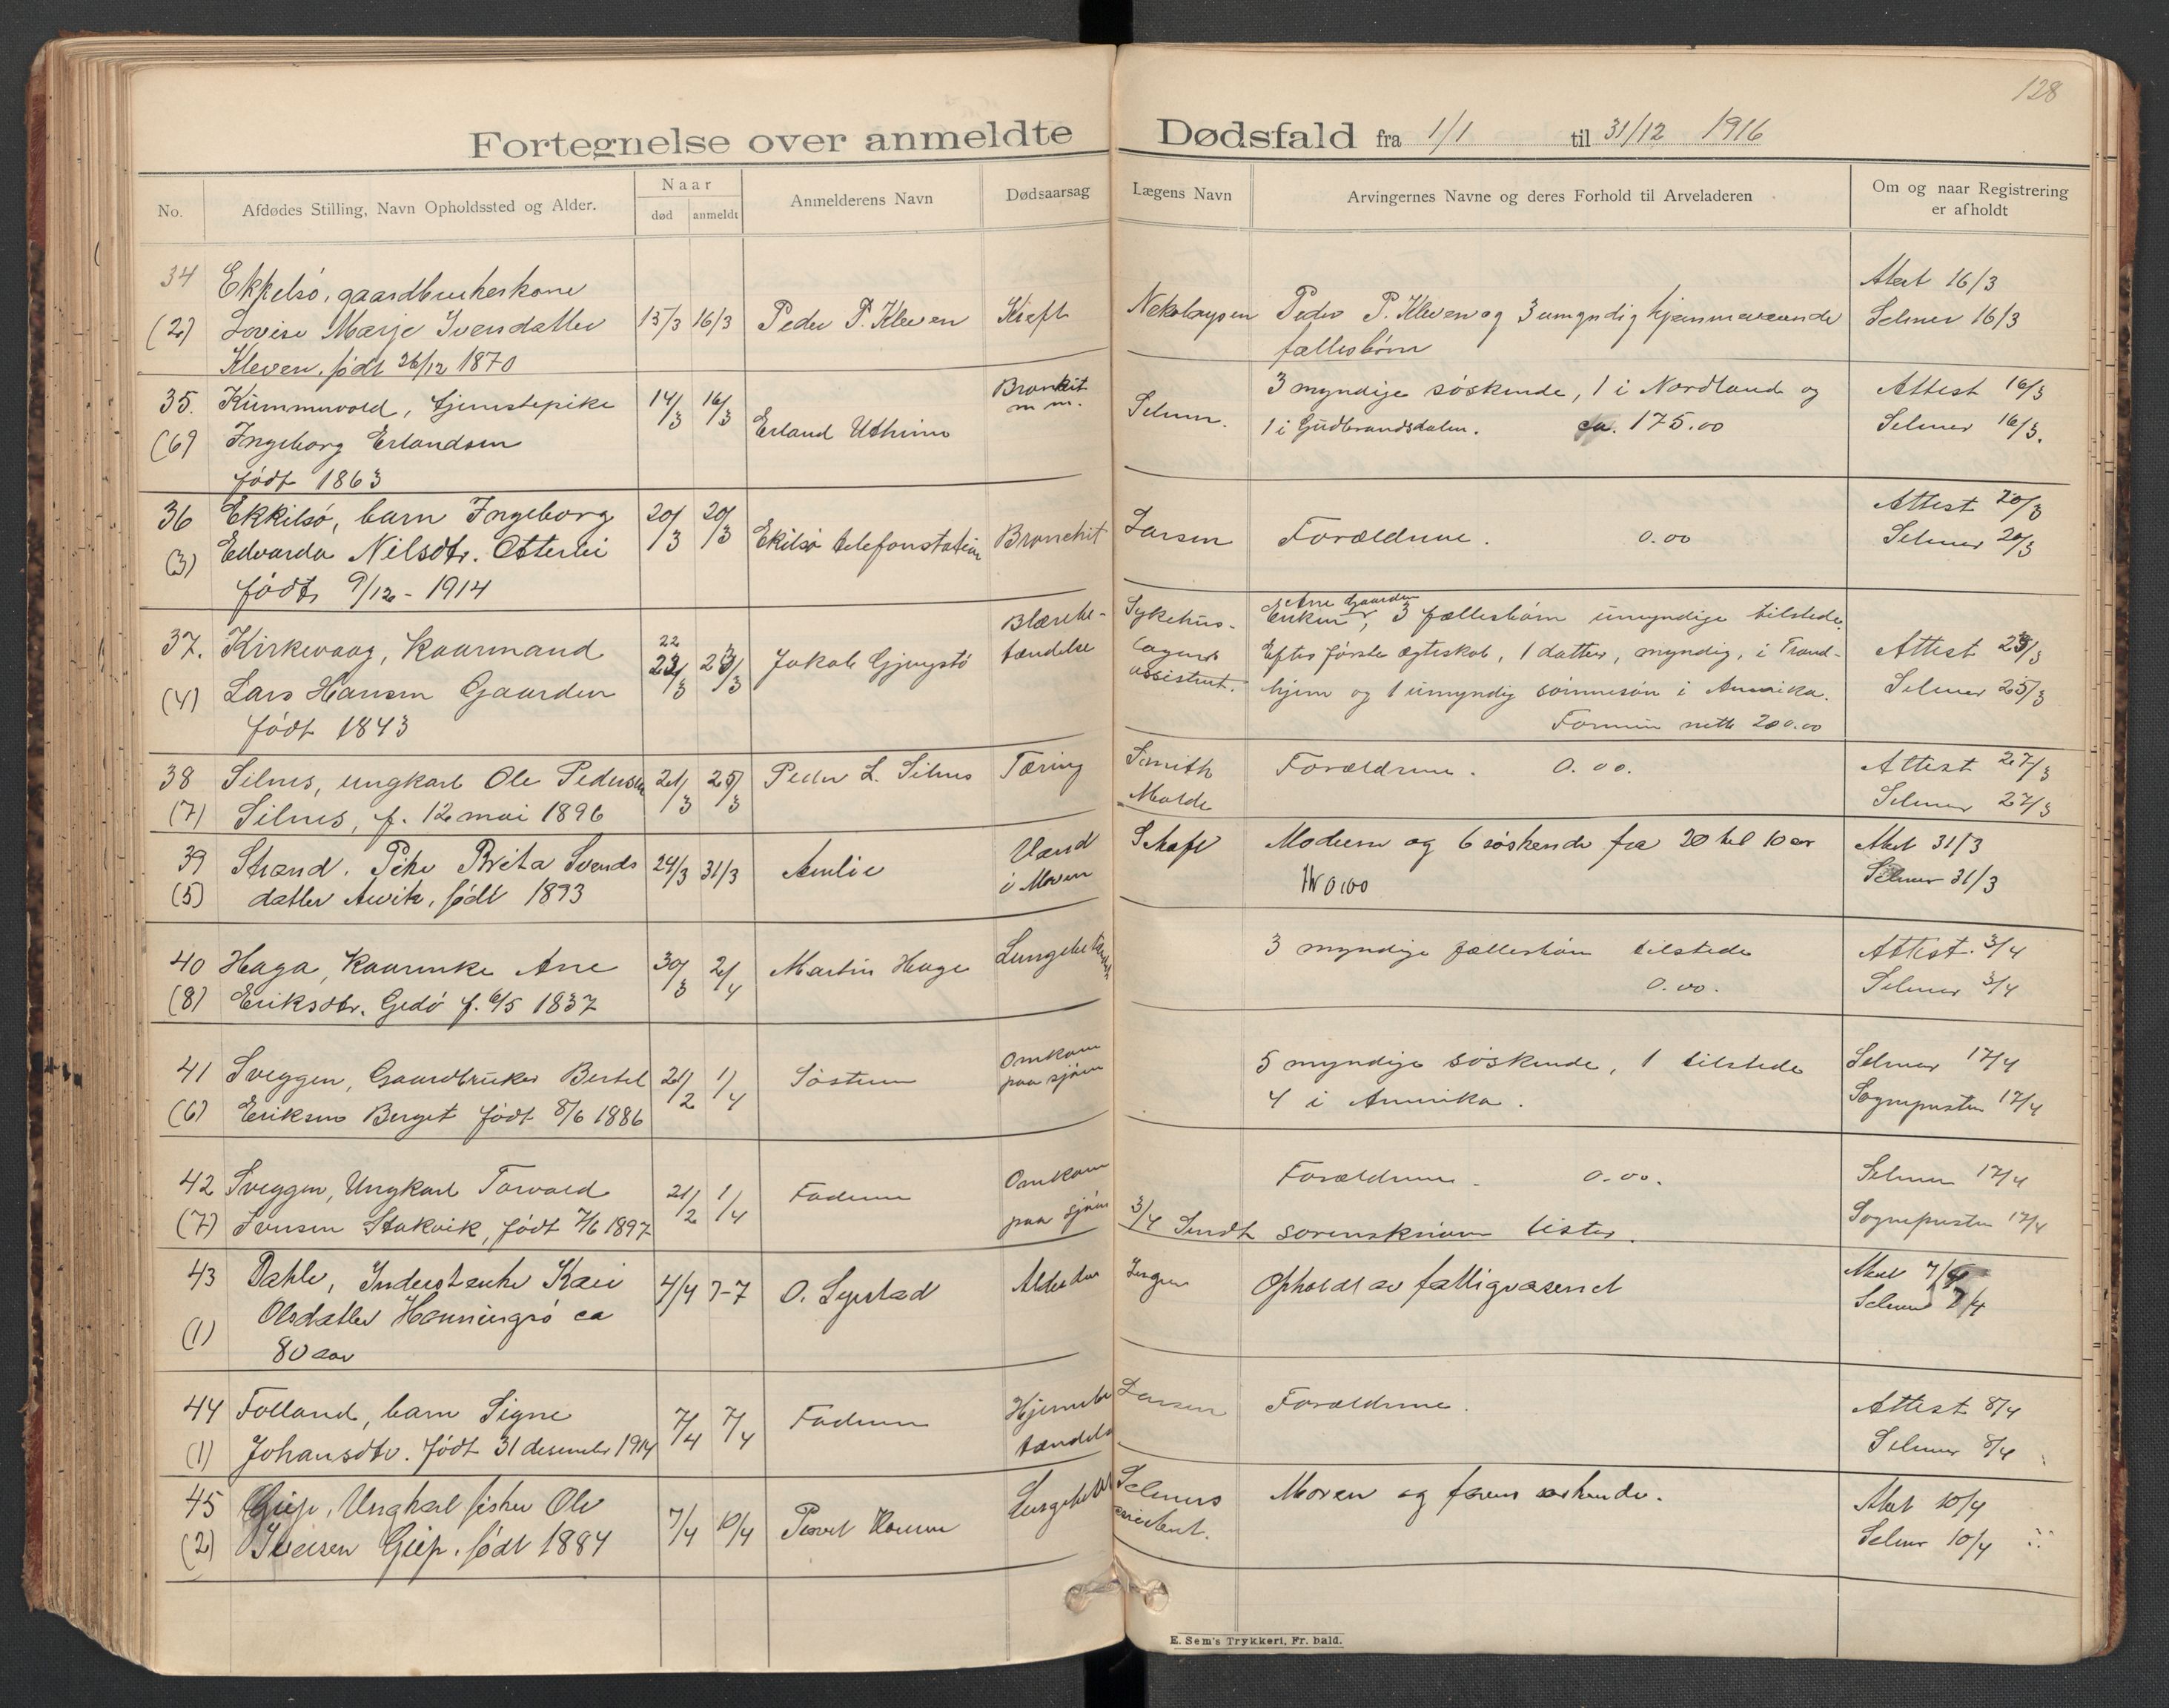 128
Fortegnelse over anmeldte Dødsfald fra 1/1 til 31/12 1916
No. Afdødes Stilling, Navn Opholdssted og Alder. Naar død anmeldt Anmelderens Navn Dødsaarsag Lægens Navn Arvingernes Navne og deres Forhold til Arveladeren Om og naar Registrering er afholdt
34 Ekkelsø, gaardbrukerkone Attest 16/3
(2) Lovise Marje Iversdatter 15/3 16/3 Peder P. Kleven Kræft Nekolaysen Peder P. Kleven og 3 umyndig hjemmeværende Selmer 16/3
Kleven, født 26/12 1870 fællesbørn
35. Kummervold, tjenestepike 14/3 16/3 Bronkit m m. 3 myndige søskende, 1 i Nordland og Attest 16/3
(6) Ingeborg Erlandsen Erland Utheim Selmer. 1 i Gudbrandsdalen. ca. 175.00 Selmer 16/3.
født 1863
36 Ekkilsø, barn Ingeborg 20/3 20/3 Attest 20/3
(3) Edvarda Nilsdtr. Otterlei Ekilsø telefonstation Bronchit Larsen Forældrene. 0.00 Selmer 20/3
født 9/12 - 1914
37. Kirkevaag, Kaarmand 22 23/3 Jakob Gjengstø Blærebe- Sykehus- Enken Ane Gaarden, 3 fællesbørn umyndige tilstede. Attest 25/3
(4) Lars Hansen Gaarden tændelse lægens Efter første egteskab, 1 datter, myndig, i Trond- Selmer 25/3
født 1843 assistent. hjem og 1 umyndig sønnesøn i Amerika.
Formue netto 200.00
38 Silnes, ungkarl Ole Pedersen 21/3 25/3 Peder L. Silnes Tæring Smith Forældrene. 0.00. Attest 27/3
(7) Silnes, f. 12 mai 1896 Molde Selmer 27/3
39 Strand. Pike Brita Svends 24/3 31/3 Amlie Vand Skaft Moderen og 6 søskende fra 20 til 10 aar Attest 31/3
(5) datter Awik, født 1893 i Maven Kr 0,00 Selmer 31/3
40 Haga, Kaarenke Ane 30/3 2/4 Martin Hage 3 myndige fællesbørn tilstede Attest. 3/4
(8) Eriksdtr. Gedø f. 6/5 1837 0.00. Selmer 3/4
41 Sveggen, Gaardbruker Bertel 21/2 1/4 Søsteren Omkom 5 myndige søskende, 1 tilstede Selmer 17/4
(6) Eriksen Berget født 8/6 1886 paa sjøen 4 i Amerika. Sognepresten 17/4
42 Sveggen, Ungkarl Torvald 21/2 1/4 Faderen Omkom Forældrene. 0.00. Selmer 17/4
(7) Iversen Stakvik, født 7/6 1897 paa sjøen 3/4 Sendt sorenskriveren lister. Sognepresten 17/4
43 Dahle, Inderstenke Kari 4/4 7-7 O. Syrstad Alderdom Jergen Opholdt av fattigvæsenet Attest 7/4
(1) Olsdatter Henningsø ca Selmer 7/4
80 aar
44 Folland, barn Signe 7/4 7/4 Faderen Hjernebe Larsen Forældrene. Attest 8/4
(1) Johansdtr. født 31 desember 1914 tændelse Selmer 8/4
45 Giip, Ungkarl fisker Ole 7/4 10/4 Selmers Moren og farens søskende. Attest 10/4
(2) Iversen Giip, født 1884 assistent. Selmer 10/4
E. Sem's Trykkeri, Fr. hald.